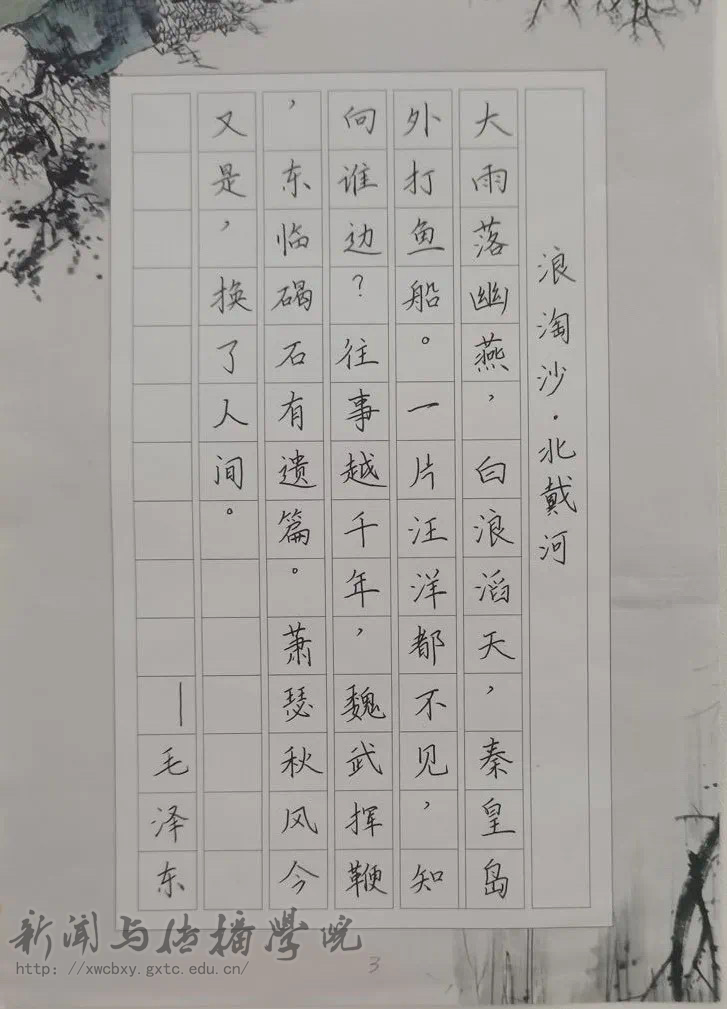 浪淘沙·北戴河
大雨落幽燕，白浪滔天，秦皇岛
外打鱼船。一片汪洋都不见，知
向谁边？往事越千年，魏武挥鞭
，东临碣石有遗篇。萧瑟秋风今
又是，换了人间。
—毛泽东
新闻与传播学院
http: //xwcbxy.gxtc.edu.cn/
3